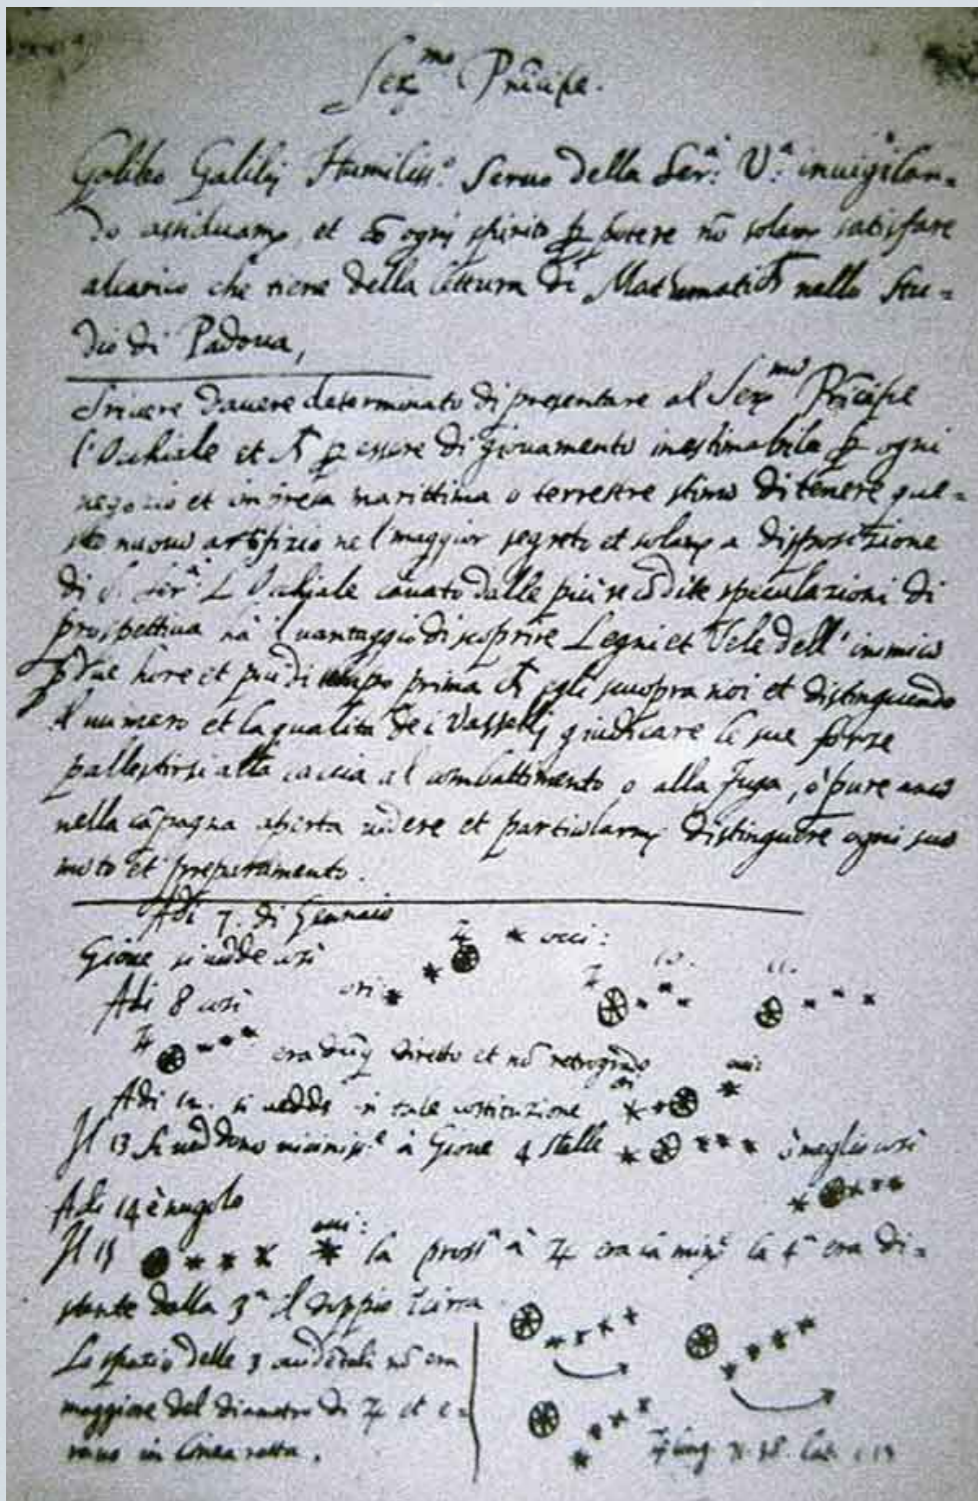 Ser.mo Principe.
Galileo Galilej Humiliss.o Servo della Ser.a V.a invigilan=
do assiduam.e, et cō ogni spirito p potere nō solam.e satisfare
alcarico che tiene della lettura di Mathematich nello Stu=
dio di Padova,
Scrivere davere determinato di presentare al Ser.mo Principe
l'Occhiale et p essere di giovamento inestimabile p ogni
negozio et impresa marittima o terrestre stimo di tenere que=
sto nuovo artifizio nel maggior segreto et solam.e a disposizione
di S. Ser.a L'Occhiale cavato dalle più recōdite speculazioni di
prospettiva ha il vantaggio di scoprire Legni et Vele dell'inimico
p due hore et più di tempo prima ch egli scuopra noi et distinguendo
il numero et la qualità de i Vasselli giudicare le sue forze
pallestirsi alla caccia al combattimento o alla fuga, ò pure anco
nella cāpagna aperta vedere et particolarm.e distinguere ogni suo
moto et preparamento.
Adi 7. di Gennaio
Gioue si uedde così
♃ occi:
ori
Adi 8 così
♃ 10. 11.
♃ era dūq diretto et nō retrogrado
Adi 12. si uedde in tale costituzione ori occi:
Il 13 si veddono vicinis.e à Gioue 4 stelle ò meglio così
Adi 14 è nugolo
Il 15 occi: la pross.a à ♃ era la min.e la 4.a era di=
stante dalla 3.a il doppio
Lo spazio delle 3 occidētali nō era
maggiore del diametro di ♃ et e=
rano in linea retta.
♃ long. 71.38 Lat. 1.13